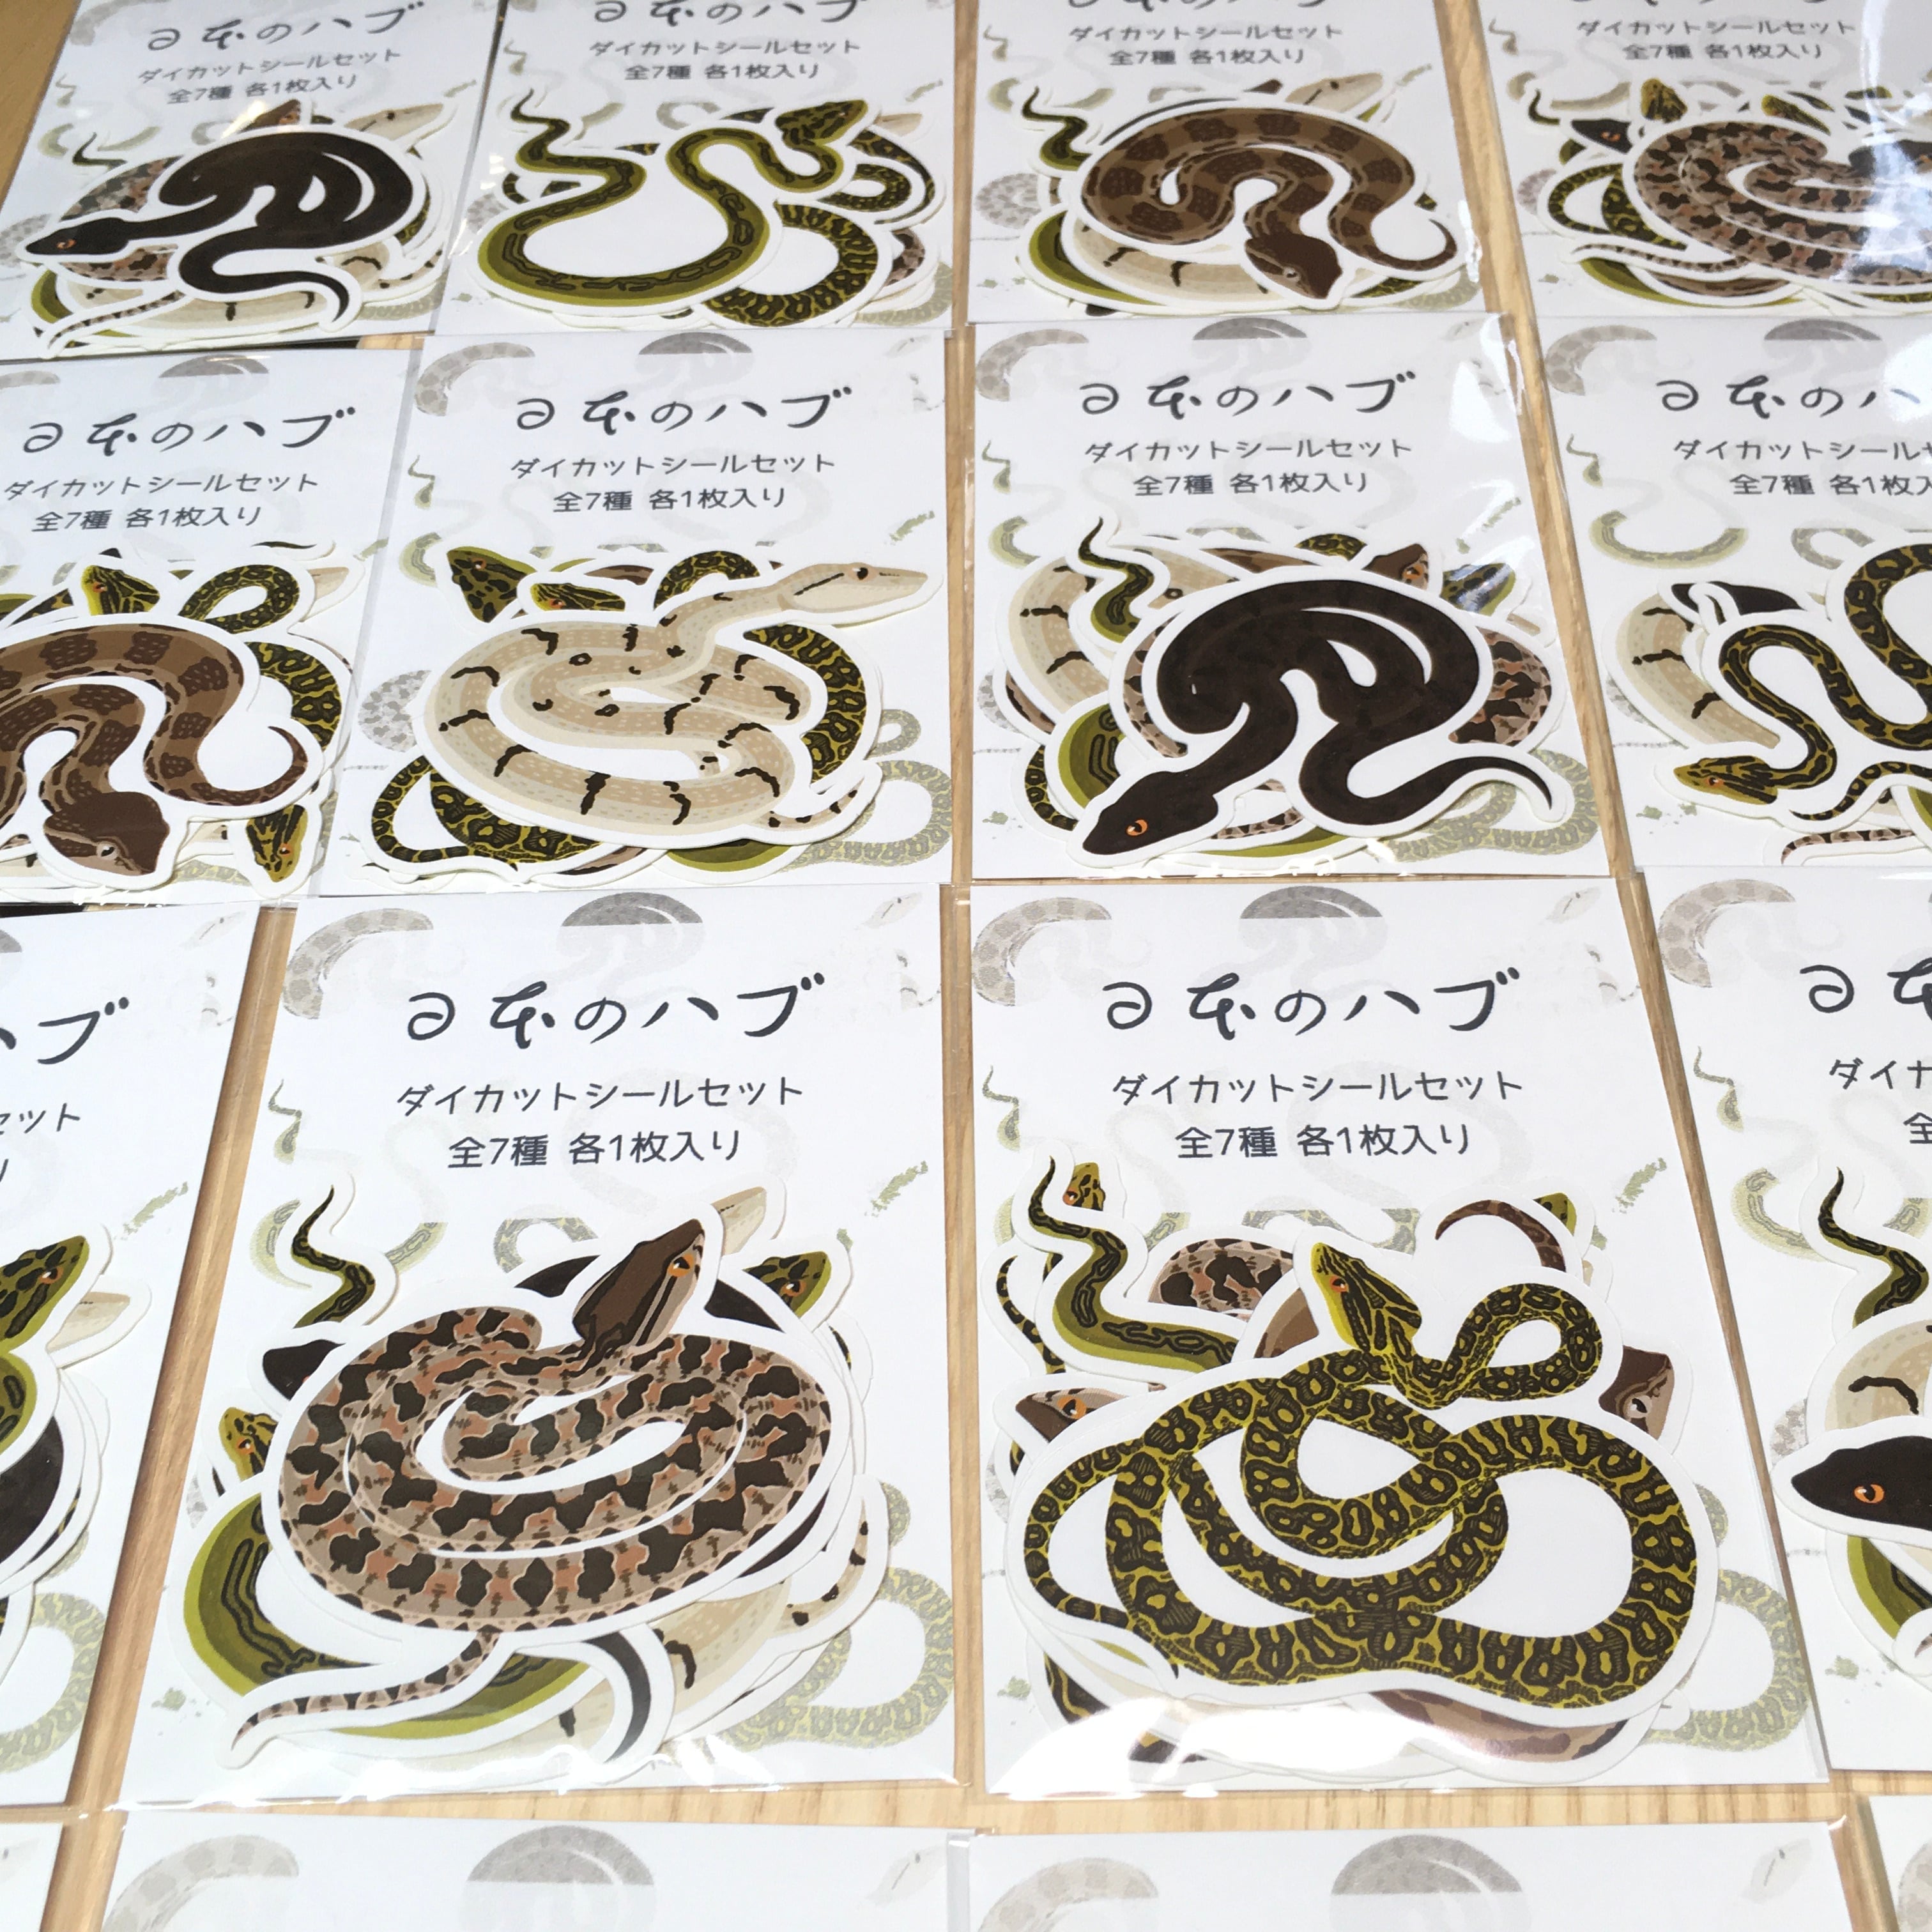 日本のハブ
ダイカットシールセット
全7種 各1枚入り
日本のハブ
ダイカットシールセット
全7種 各1枚入り
日本のハブ
ダイカットシールセット
全7種 各1枚入り
ダイカットシールセット
全7種 各1枚入り
日本のハブ
ダイカットシールセット
全7種 各1枚入り
日本のハブ
ダイカットシールセット
全7種 各1枚入り
日本のハブ
ダイカットシールセット
全7種 各1枚入り
日本のハ
ダイカットシール
全7種 各1枚入
ハブ
セット
り
日本のハブ
ダイカットシールセット
全7種 各1枚入り
日本のハブ
ダイカットシールセット
全7種 各1枚入り
日本
ダイカ
全